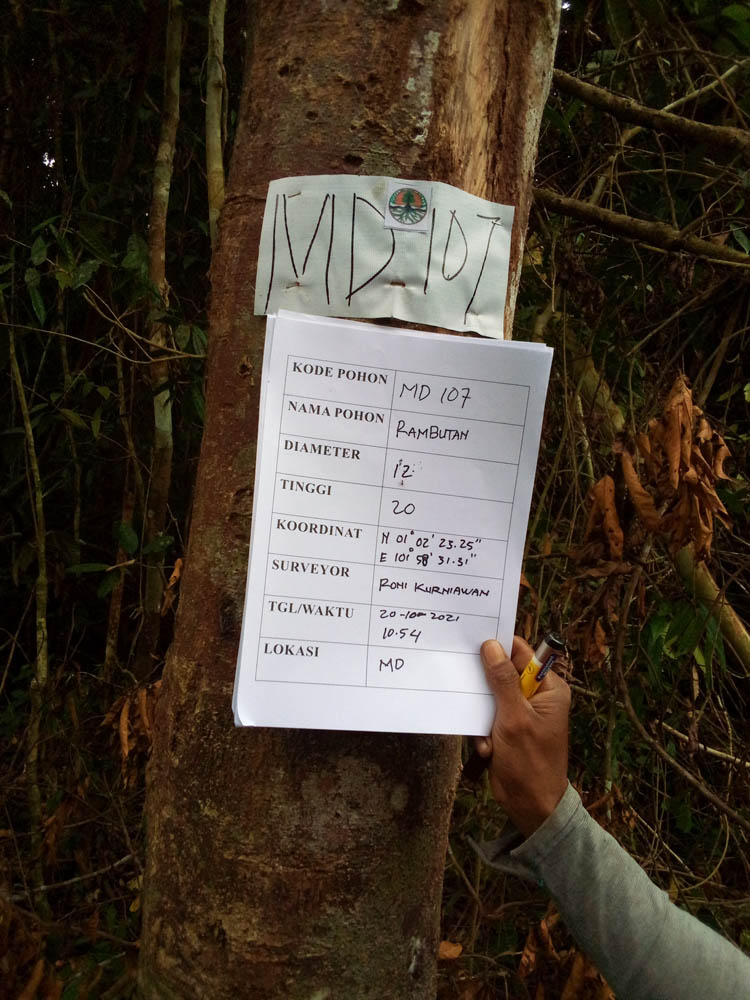 MD 107
KODE POHON MD 107
NAMA POHON RAMBUTAN
DIAMETER 12
TINGGI 20
KOORDINAT N 01° 02' 23.25"
E 101° 58' 31.31"
SURVEYOR RONI KURNIAWAN
TGL/WAKTU 20-10-2021
10.54
LOKASI MD